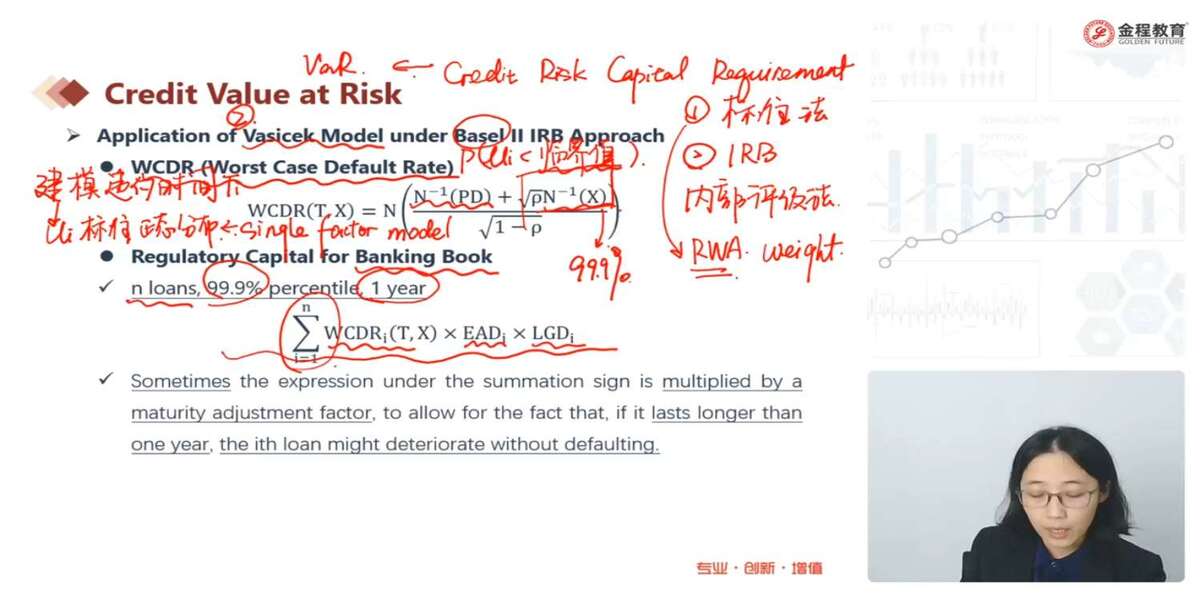 金程教育
GOLDEN FUTURE
VaR. ← Credit Risk Capital Requirement
Credit Value at Risk
① 标准法
②
Application of Vasicek Model under Basel II IRB Approach
② IRB
WCDR (Worst Case Default Rate) P(Ui < 临界值).
建模
内部评级法.
WCDR(T, X) = N((N⁻¹(PD) + √ρN⁻¹(X)) / √(1 − ρ))
Ui 标准正态分布 ← single factor model
RWA. weight.
Regulatory Capital for Banking Book
99.9%
n loans, 99.9% percentile, 1 year
∑ⁿᵢ₌₁ WCDRᵢ(T, X) × EADᵢ × LGDᵢ
Sometimes the expression under the summation sign is multiplied by a
maturity adjustment factor, to allow for the fact that, if it lasts longer than
one year, the ith loan might deteriorate without defaulting.
专业·创新·增值